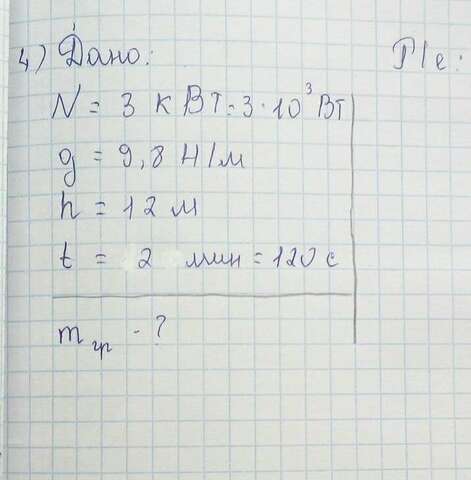 4) Дано:
P/е:
N = 3 кВт = 3·10³ Вт
g = 9,8 Н/м
h = 12 м
t = 2 мин = 120 с
m гр - ?